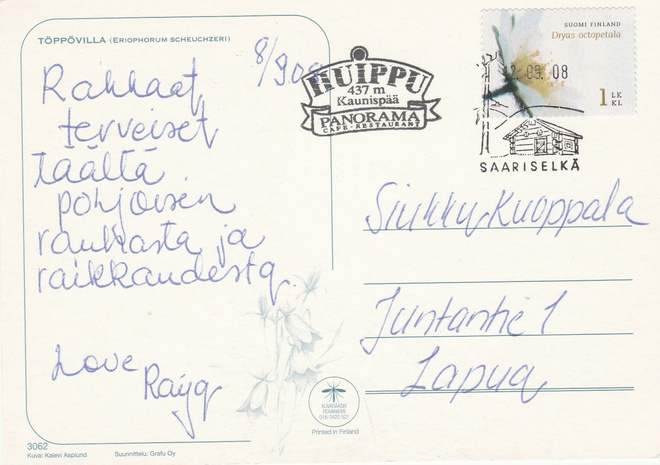 TÖPPÖVILLA (ERIOPHORUM SCHEUCHZERI)
8/9 08
Rakkaat
terveiset
täältä
pohjoisen
rauhasta ja
raikkaudesta.
Love
HUIPPU
437 m
Kaunispää
PANORAMA
CAFE-RESTAURANT
SUOMI FINLAND
Dryas octopetala
09. 08
1 LK
KL
SAARISELKÄ
Sirkku Kuoppala
Juntantie 1
Lapua
ROVANIEMI
016-3420 521
Printed in Finland
3062
Kuva: Kalevi Asplund
Suunnittelu: Grafu Oy